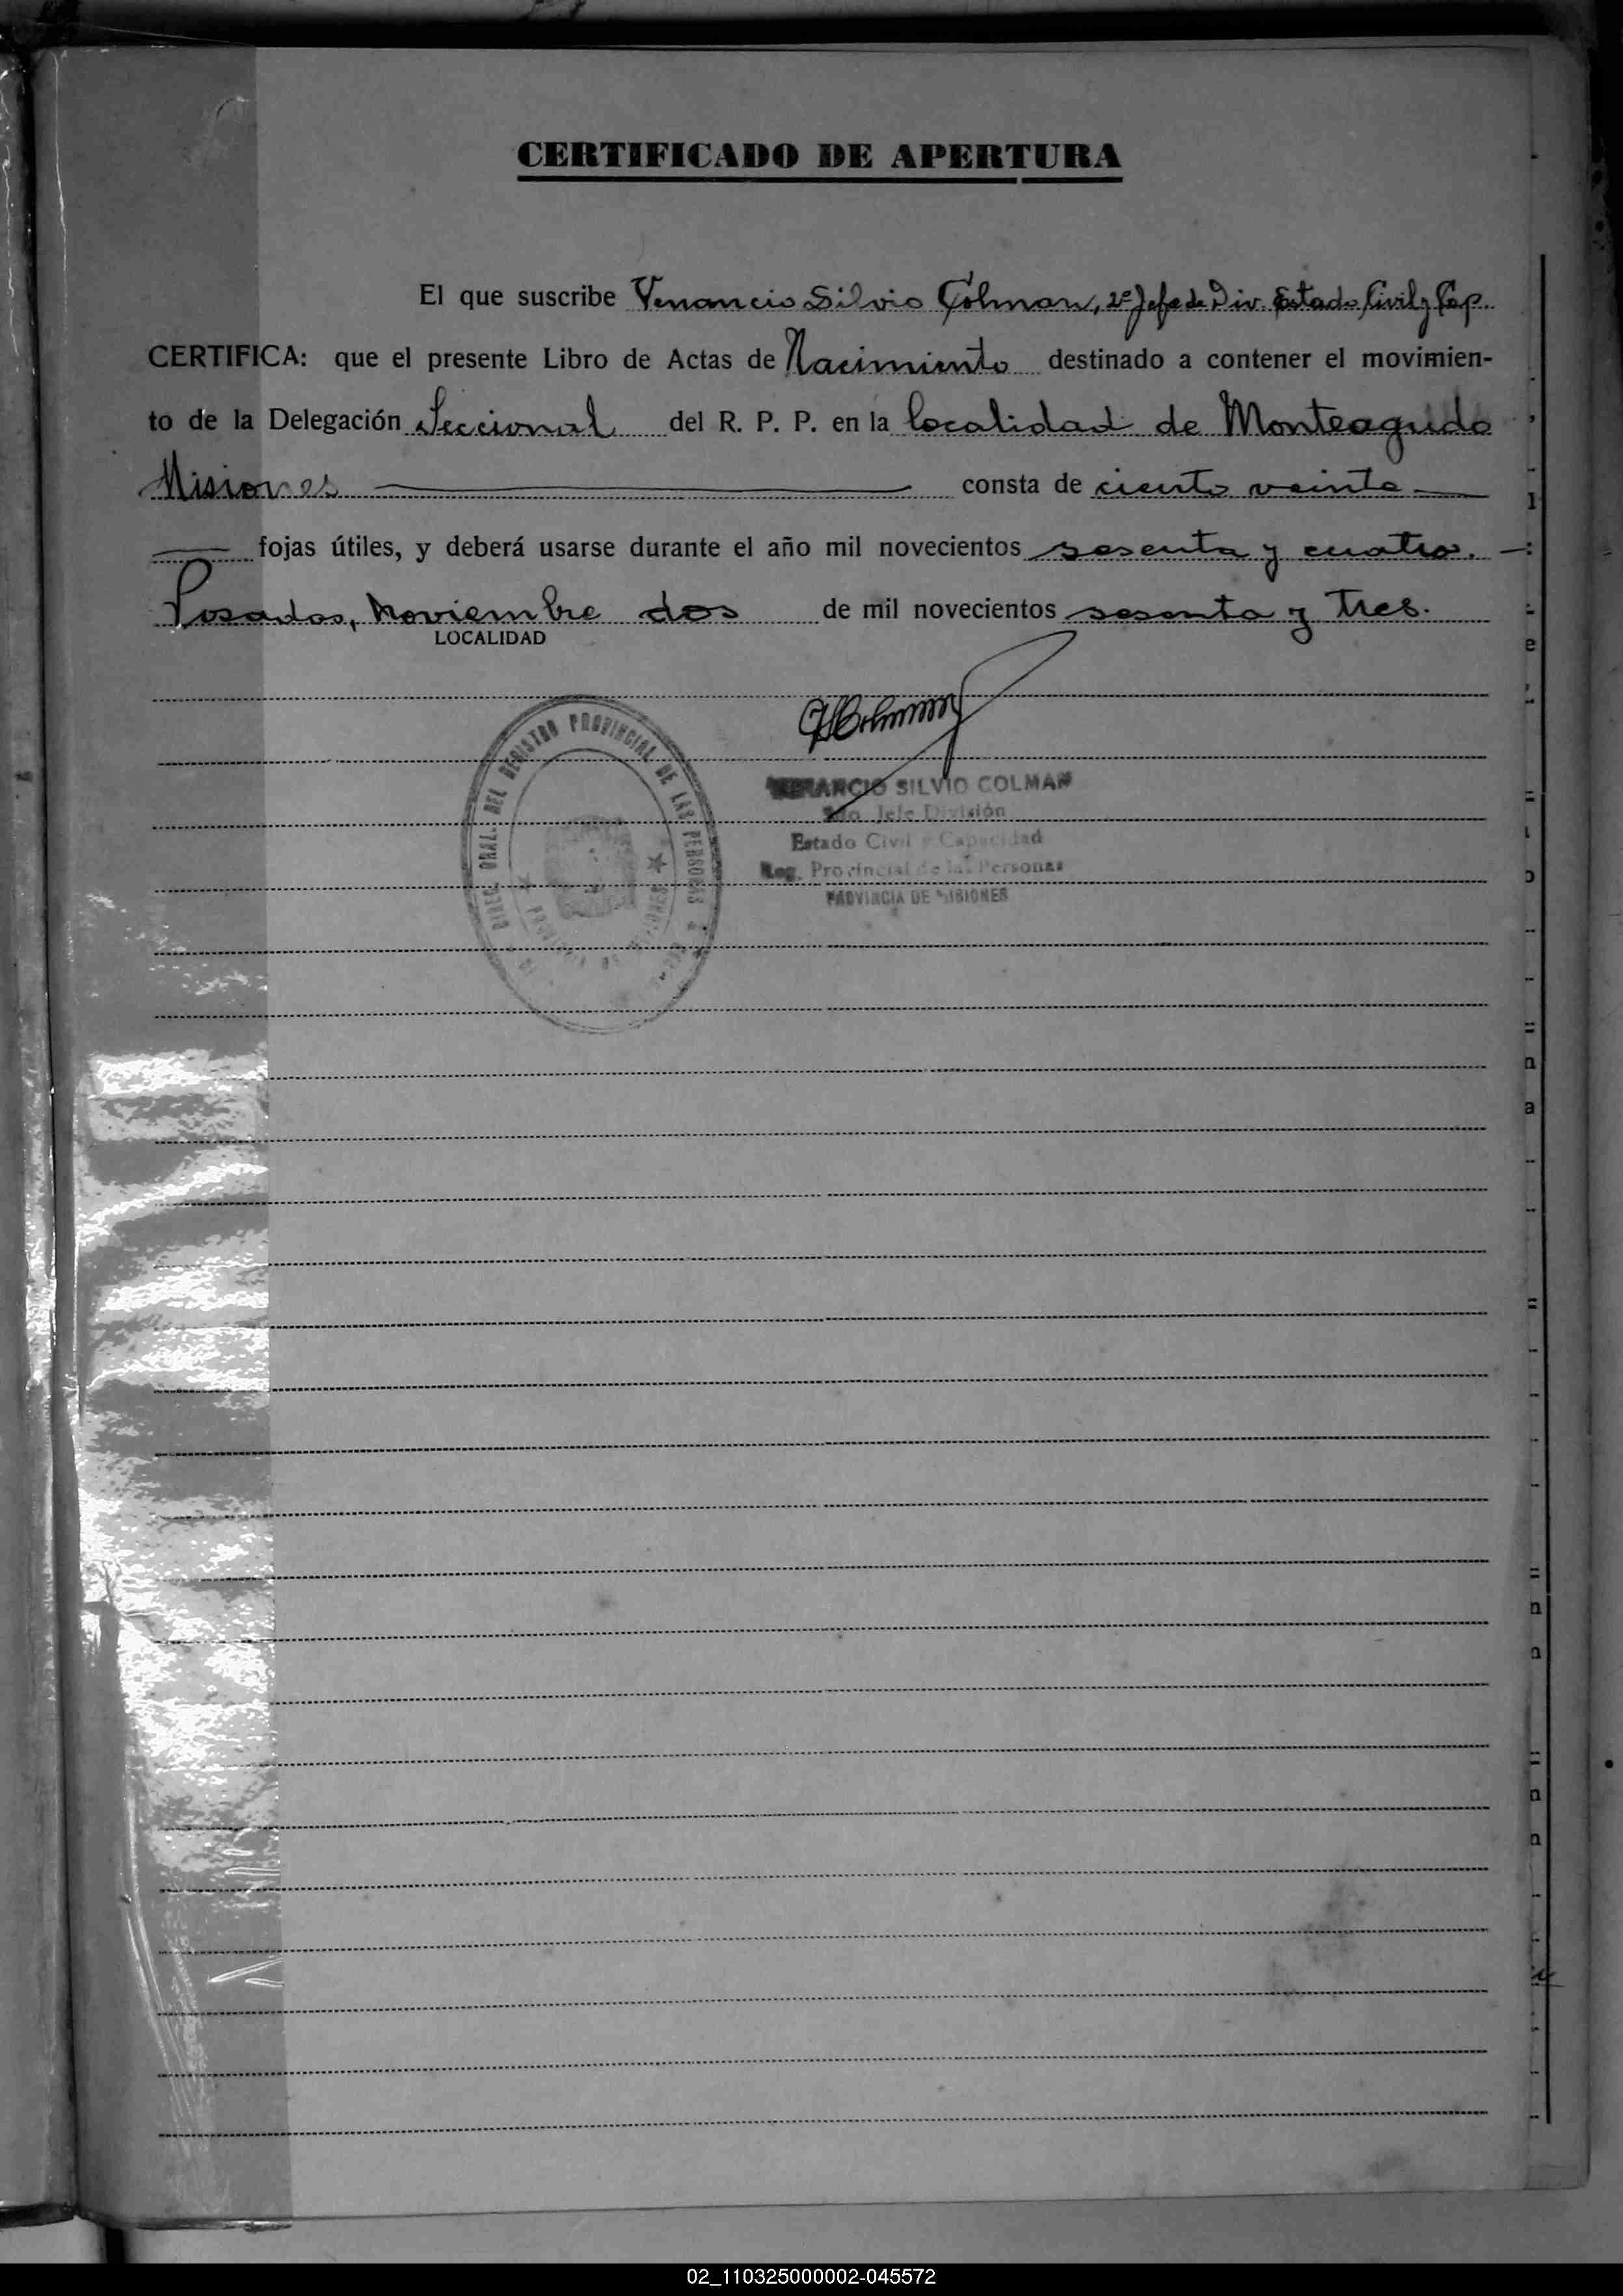 CERTIFICADO DE APERTURA
El que suscribe Venancio Silvio Colman, 2º Jefe de Div. Estado Civil y Cap.
CERTIFICA: que el presente Libro de Actas de Nacimiento destinado a contener el movimien-
to de la Delegación Seccional del R. P. P. en la localidad de Monteagudo
Misiones consta de ciento veinte
fojas útiles, y deberá usarse durante el año mil novecientos sesenta y cuatro.
Posadas, Noviembre dos de mil novecientos sesenta y tres.
LOCALIDAD
DIREC. GRAL. DEL REGISTRO PROVINCIAL DE LAS PERSONAS
VSColman
VENANCIO SILVIO COLMAN
2do. Jefe División
Estado Civil y Capacidad
Reg. Provincial de las Personas
PROVINCIA DE MISIONES
02_110325000002-045572